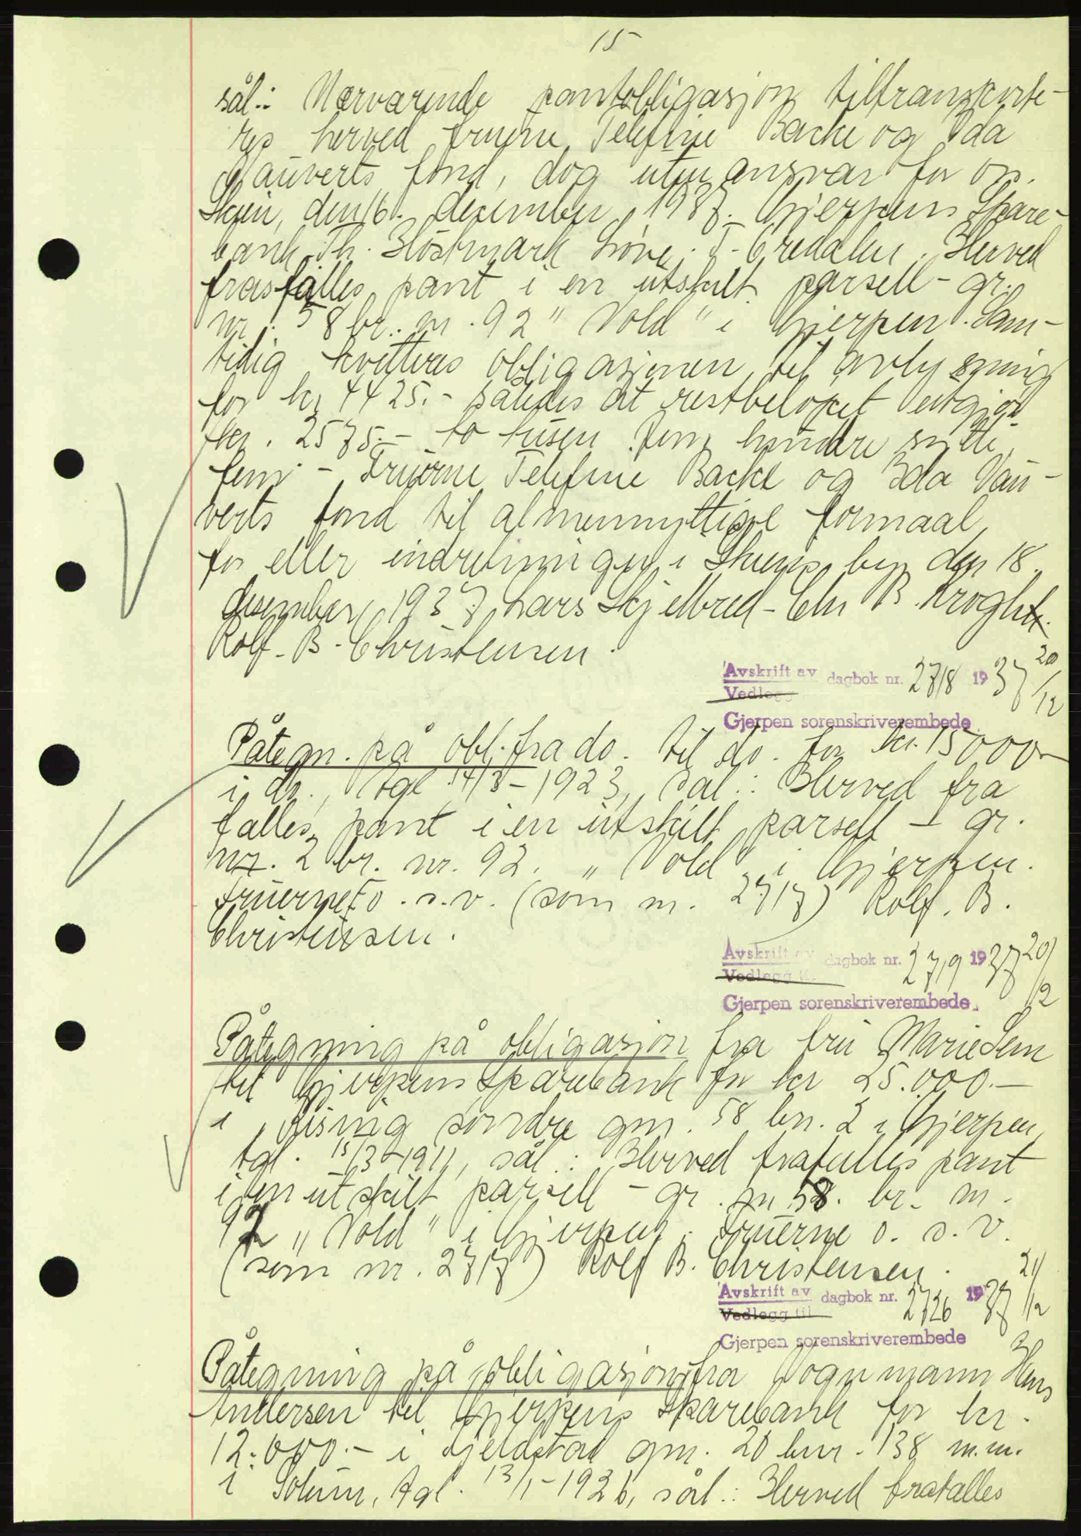 15
sål.: Nærværende pantobligasjon tiltransporte-
res herved fruerne Telefine Backe og Ida
Vauverts fond, dog uten ansvar for os.
Skien, den 16. desember 1937. Gjerpens Spare-
bank Th. Høstmark Løve. T. Herved
frafalles pant i en utskilt parsell - gr.
nr. 58 br. nr. 92 "Vold" i Gjerpen. Sam-
tidig kvitteres obligasjonen til avlysning
for kr 4425.- således at restbeløpet utgjør
kr. 2575.- to tusen fem hundre sytti
fem - Fruerne Telefine Backe og Ida Vau-
verts fond til almennyttige formaal
for eller indretninger i Skiens by den 18.
desember 1937 Lars Skjelbred - Chr B. Krogh
Rolf. B. Christensen.
Avskrift av dagbok nr. 2718 1937 20/12
Vedlegg
Gjerpen sorenskriverembede
Påtegn. på obl. fra do. til do. for kr. 15000-
i do., tgl 14/3-1923, sål.: Herved fra
falles pant i en utskilt parsell - gr.
nr. 2 br. nr. 92. "Vold" i Gjerpen.
Fruerne o.s.v. (som nr. 2717) Rolf. B.
Christensen.
Avskrift av dagbok nr. 2719 1937 20/12
Vedlegg til
Gjerpen sorenskriverembede
Påtegning på obligasjon fra fru Marie Sem
til Gjerpens Sparebank for kr 25.000.-
i Rising søndre gnr. 58 bn. 2 i Gjerpen,
tgl. 15/3-1911, sål.: Herved frafalles pant
i en utskilt parsell - gr. nr 58. br. nr.
92 "Vold" i Gjerpen. Fruerne o. s. v.
(som nr. 2717) Rolf B. Christensen.
Avskrift av dagbok nr. 2726 1937 21/12
Vedlegg til
Gjerpen sorenskriverembede
Påtegning på obligasjon fra Vognmann Hans
Andersen til Gjerpens Sparebank for kr.
12.000.- i Fjeldstad gnr. 20 bnr. 138 m.m.
i Solum, tgl. 13/1-1926, sål.: Herved frafalles